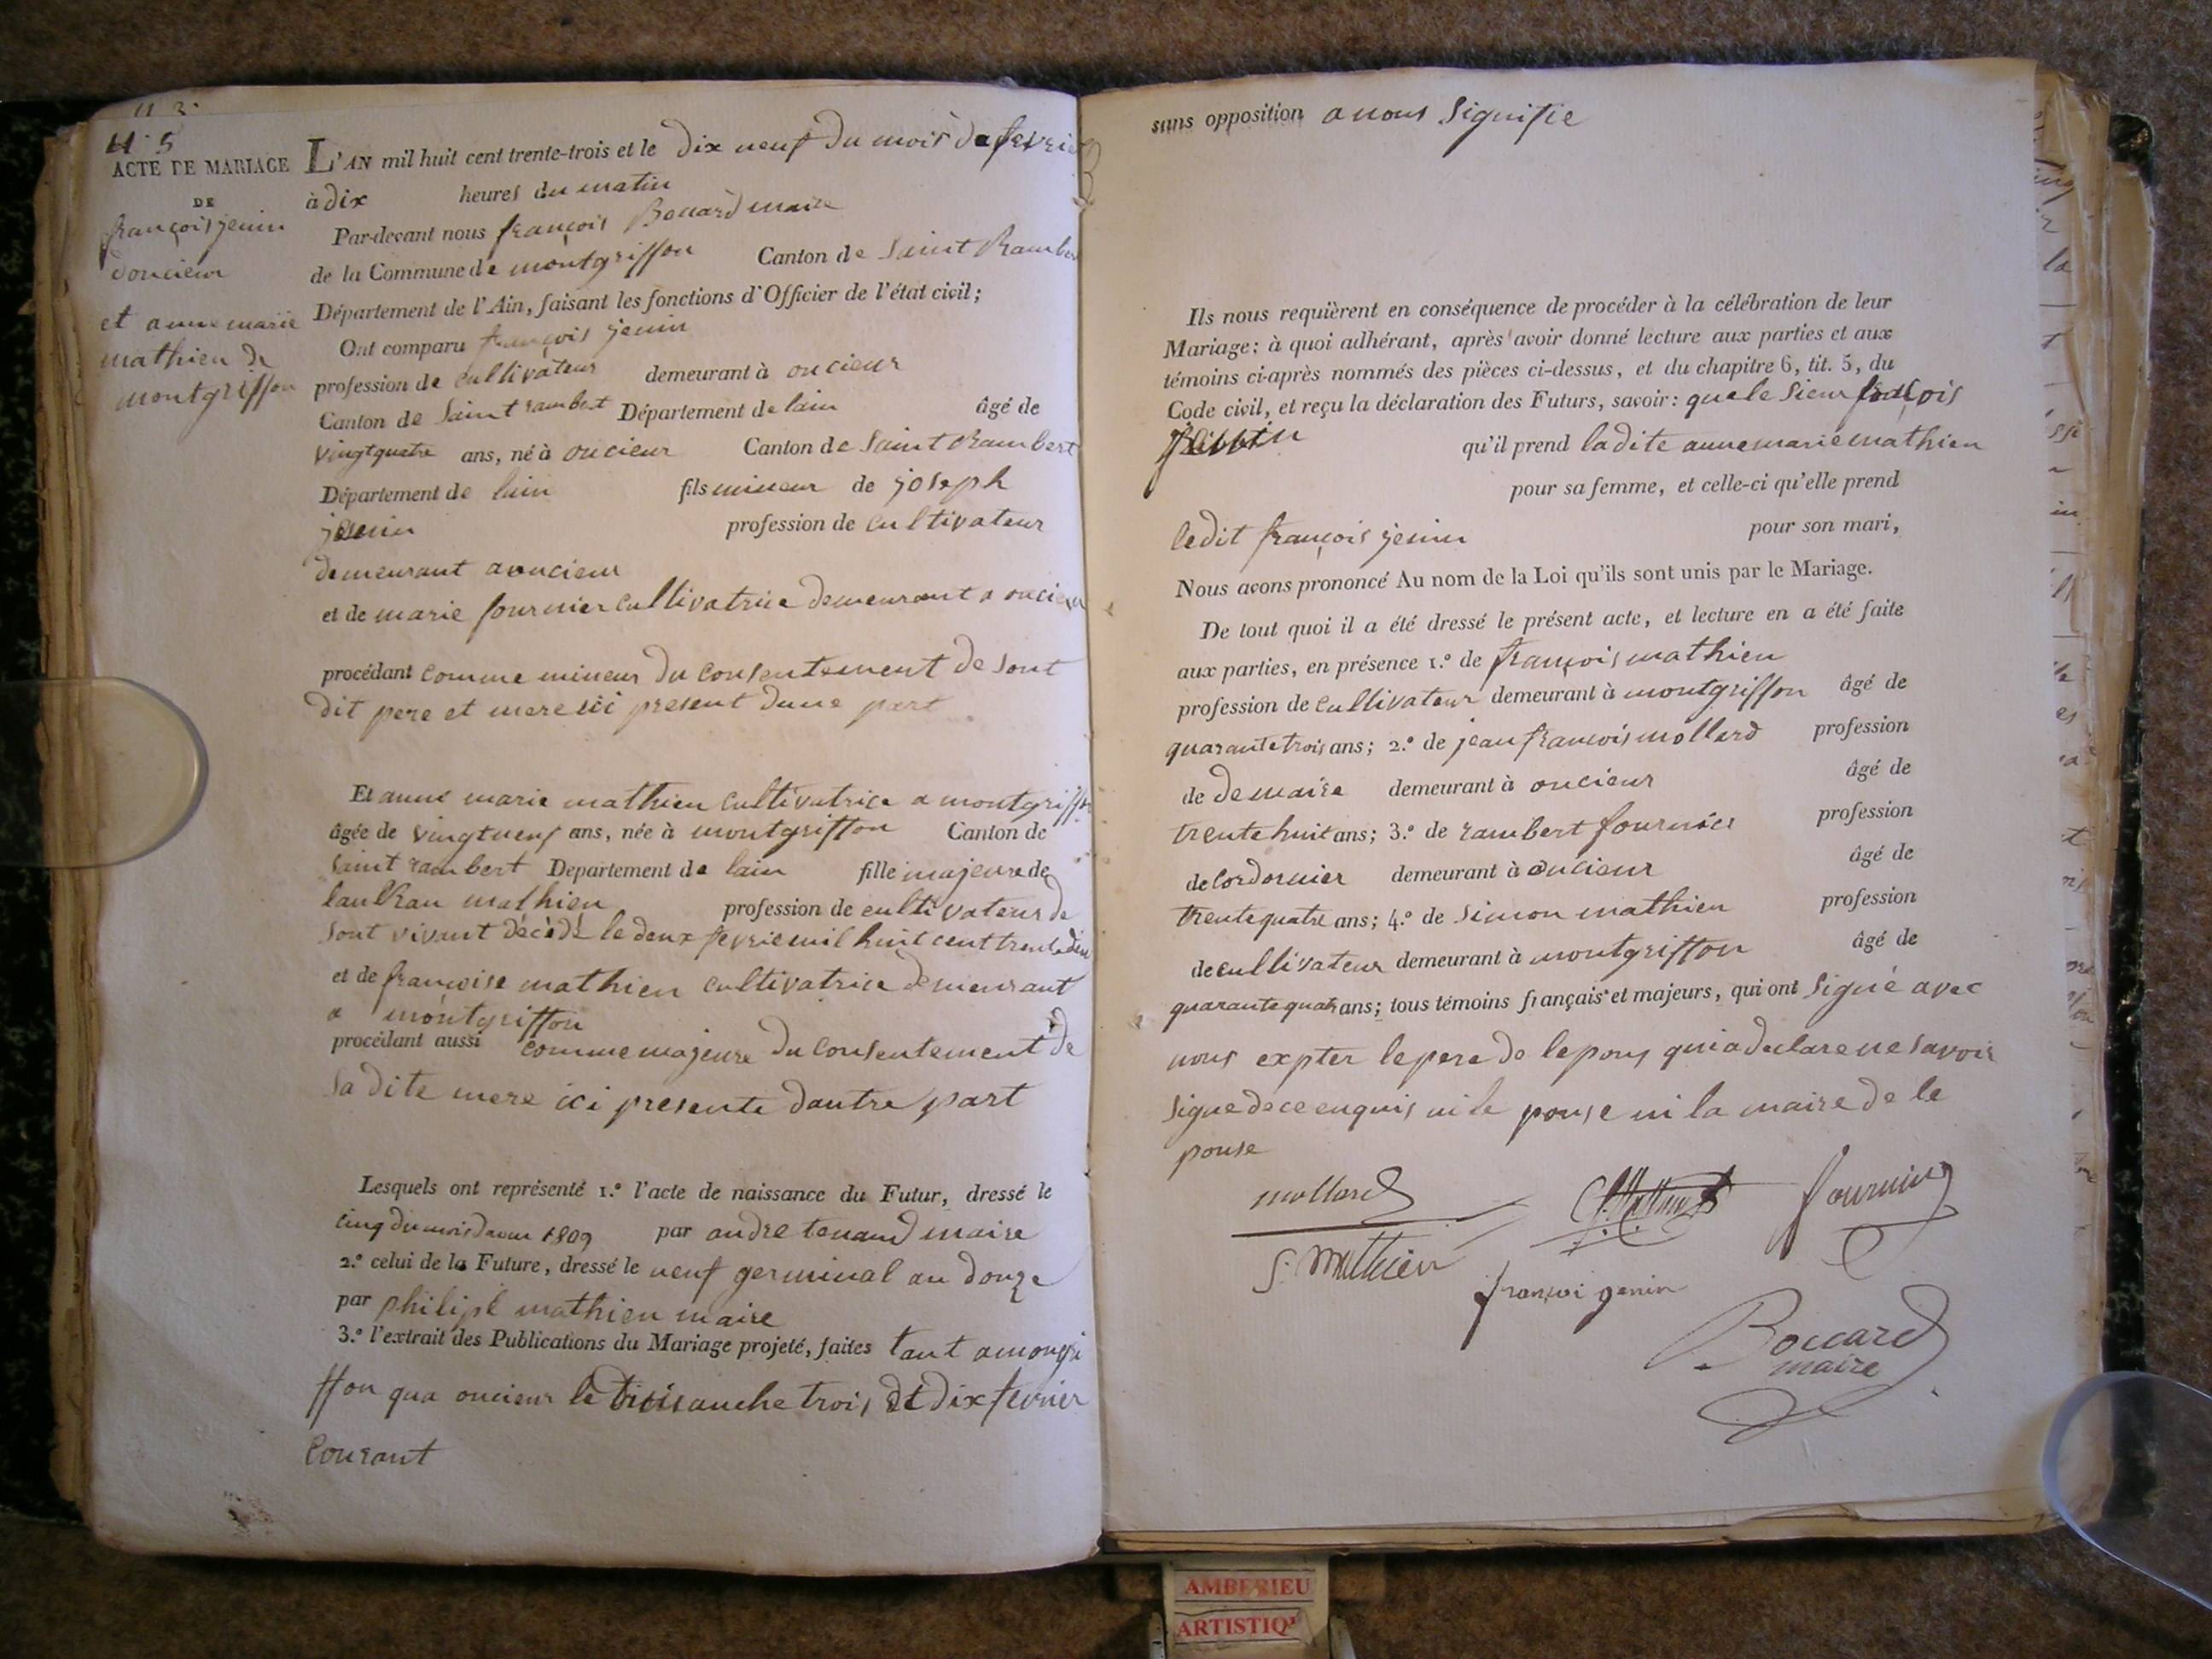 N° 5
ACTE DE MARIAGE
DE
françois jenin
doncieur
et anne marie
mathieu de
montgriffon
L'AN mil huit cent trente-trois et le dix neuf du mois de fevrier
à dix heures du matin
Par-devant nous françois Boccard maire
de la Commune de montgriffon Canton de Saint Rambert
Département de l'Ain, faisant les fonctions d'Officier de l'état civil;
Ont comparu françois jenin
profession de cultivateur demeurant à oncieur
Canton de Saint rambert Département de lain âgé de
vingtquatre ans, né à oncieur Canton de Saint Rambert
Département de lain fils mineur de joseph
jenin profession de cultivateur
demeurant a oncieur
et de marie fournier cultivatrice demeurant a oncieur
procédant comme mineur du consentement de sont
dit pere et mere ici present dune part
Et anne marie mathieu cultivatrice a montgriffon
âgée de vingtneuf ans, née à montgriffon Canton de
saint rambert Departement de lain fille majeure de
mathieu profession de cultivateur de
sont vivant décédé le deux fevrie mil huit cent trente deux
et de françoise mathieu cultivatrice demeurant
a montgriffon
procédant aussi comme majeure du consentement de
sa dite mere ici presente dautre part
Lesquels ont représenté 1.° l'acte de naissance du Futur, dressé le
cinq du mois daout 1809 par andre tenand maire
2.° celui de la Future, dressé le neuf germinal an douze
par philipt mathieu maire
3.° l'extrait des Publications du Mariage projeté, faites tant amongri
ffon qua oncieur le dimanche trois et dix fevrier
courant
sans opposition a nous signifie
Ils nous requièrent en conséquence de procéder à la célébration de leur
Mariage; à quoi adhérant, après avoir donné lecture aux parties et aux
témoins ci-après nommés des pièces ci-dessus, et du chapitre 6, tit. 5, du
Code civil, et reçu la déclaration des Futurs, savoir: que le sieur françois
jenin qu'il prend ladite anne marie mathieu
pour sa femme, et celle-ci qu'elle prend
ledit françois jenin pour son mari,
Nous avons prononcé Au nom de la Loi qu'ils sont unis par le Mariage.
De tout quoi il a été dressé le présent acte, et lecture en a été faite
aux parties, en présence 1.° de françois mathieu
profession de cultivateur demeurant à montgriffon âgé de
quarante trois ans; 2.° de jean françois mollard profession
de de maire demeurant à oncieur âgé de
trente huit ans; 3.° de rambert fournier profession
de cordonnier demeurant à oncieur âgé de
trente quatre ans; 4.° de simon mathieu profession
de cultivateur demeurant à montgriffon âgé de
quarante quatr ans; tous témoins français et majeurs, qui ont signé avec
nous expter le pere de lepous qui a declare ne savoir
signe de ce enquis ni le pouse ni la maire de le
pouse
mollard
fournier
S. Mathieu
françoi genin
Boccard
maire
AMBERIEU
ARTISTIQ